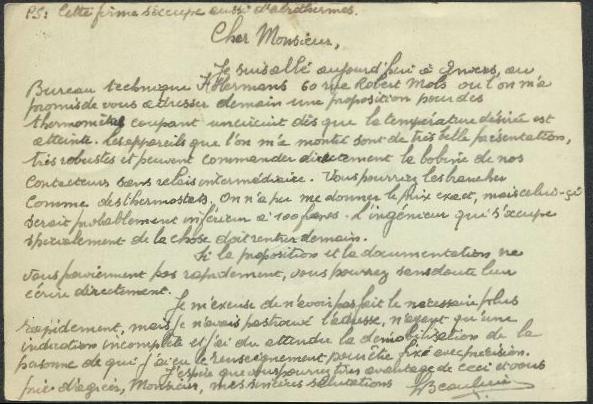 P.S: Cette firme s'occupe aussi d'aérothermes.
Cher Monsieur,
Je suis allé aujourd'hui à Anvers, au
Bureau technique H Hermans 60 rue Robert Mols où l'on m'a
promis de vous adresser demain une proposition pour des
thermomètres coupant un circuit dès que la température désirée est
atteinte. Les appareils que l'on m'a montré sont de très belle présentation,
très robustes et peuvent commander directement la bobine de nos
contacteurs sans relais intermédiaire. Vous pourrez les brancher
comme des thermostats. On n'a pu me donner le prix exact, mais celui-çi
serait probablement inférieur à 100 francs. L'ingénieur qui s'occupe
spécialement de la chose doit rentrer demain.
Si la proposition et la documentation ne
vous parviennent pas rapidement, vous pourrez sans doute leur
écrire directement.
Je m'excuse de n'avoir pas fait le nécessaire plus
rapidement, mais je n'avais pas trouvé l'adresse, n'ayant qu'une
indication incomplète et j'ai du attendre la démobilisation de la
personne de qui j'ai eu le renseignement pour être fixé avec précision.
J'espère que vous pourrez tirer avantage de ceci et vous
prie d'agréer, Monsieur, mes sincères salutations